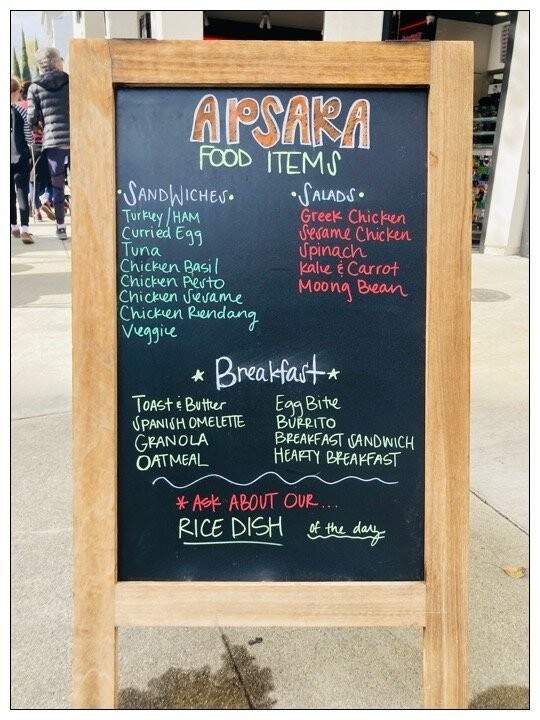 APSARA
FOOD ITEMS
·SANDWICHES·
Turkey/HAM
Curried Egg
Tuna
Chicken Basil
Chicken Pesto
Chicken Sesame
Chicken Rendang
Veggie
·SALADS·
Greek Chicken
Sesame Chicken
Spinach
Kale & Carrot
Moong Bean
* Breakfast *
TOAST & Butter
SPANISH OMELETTE
GRANOLA
OATMEAL
Egg Bite
BURRITO
BREAKFAST SANDWICH
HEARTY BREAKFAST
* ASK ABOUT OUR...
RICE DISH of the day